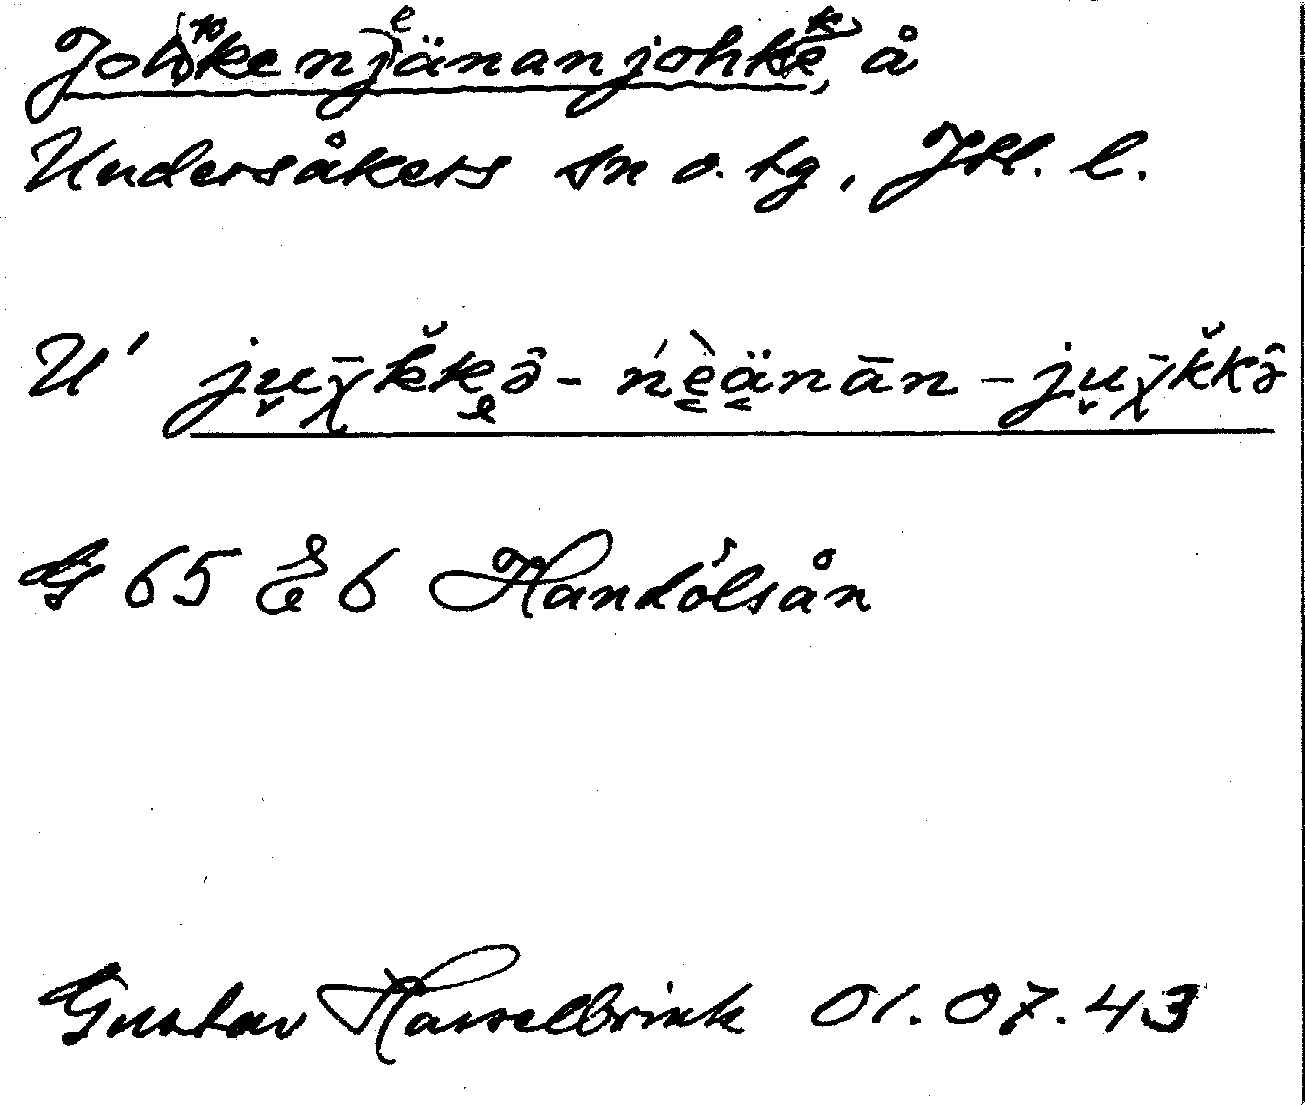 Johkenjänanjohke å
Undersåkers sn o. tg, Jtl. l.
U' ju̬χ̄k̆kə̑ - ńe̮äṇān - ju̬χ̄k̆kə̑
G 65 E 6 Handölsån
Gustav Hasselbrink 01.07.43